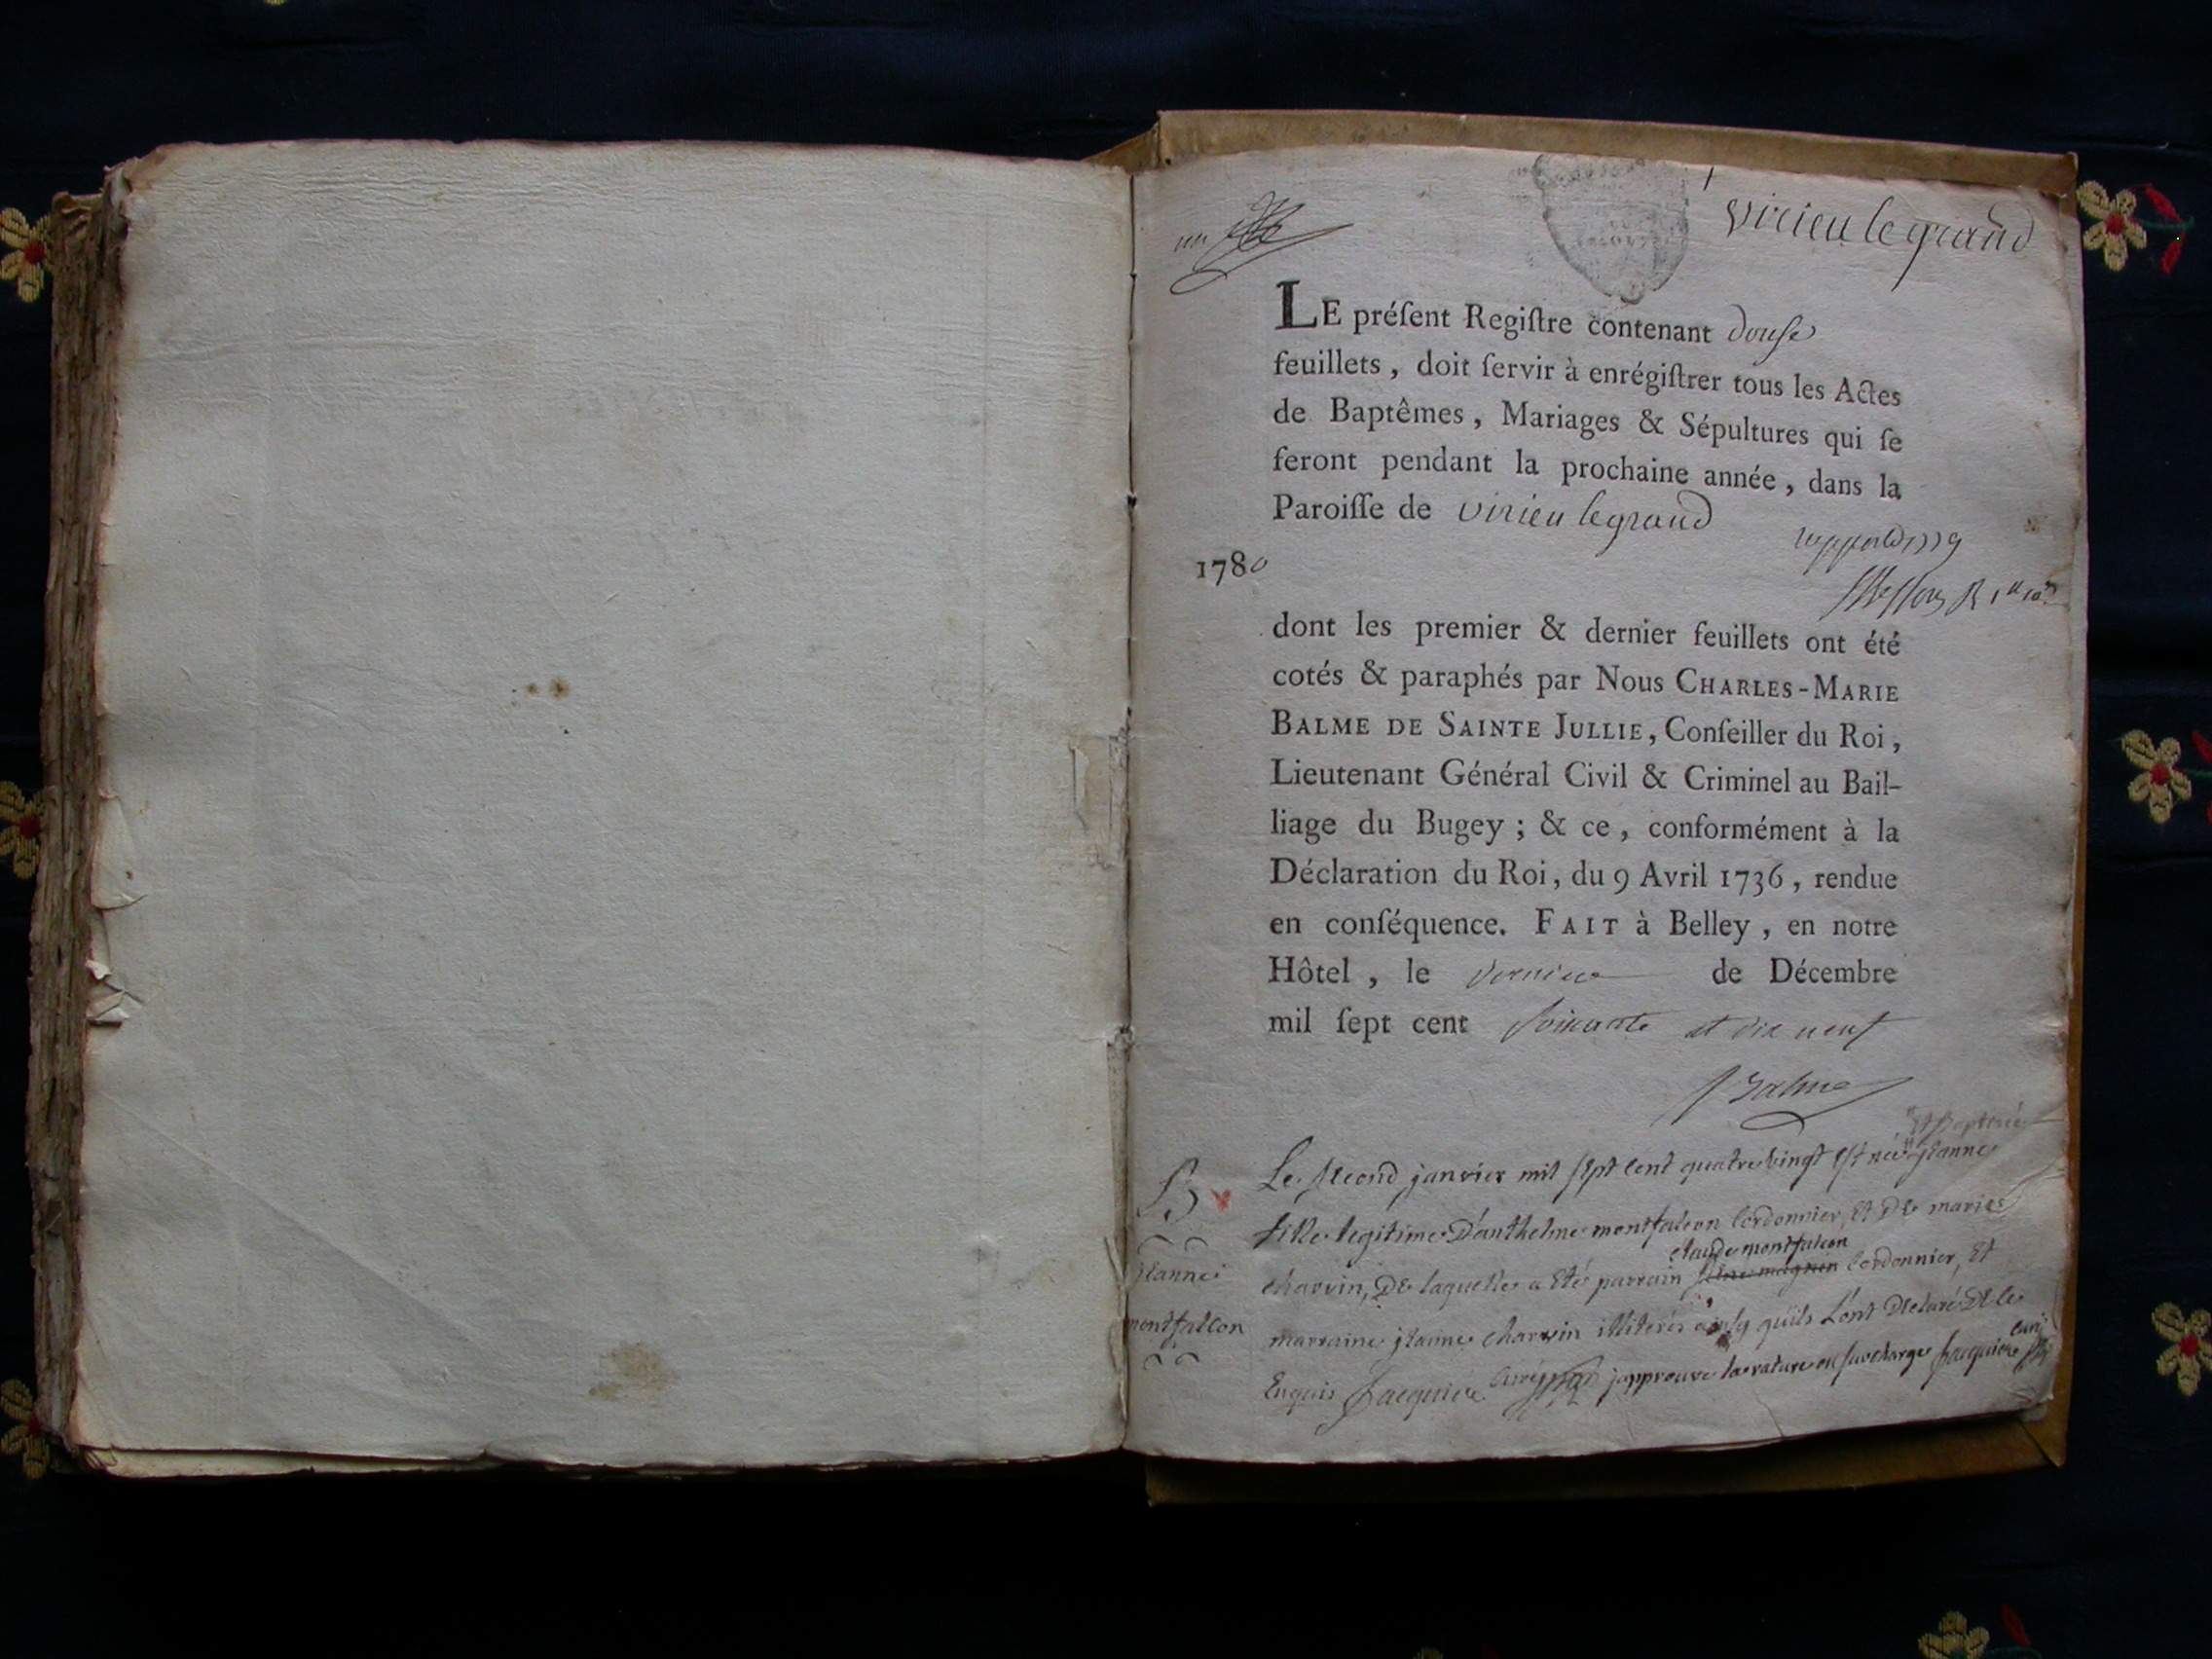 un
virieu le grand
LE préſent Regiſtre contenant douse
feuillets, doit ſervir à enrégiſtrer tous les Actes
de Baptêmes, Mariages & Sépultures qui ſe
feront pendant la prochaine année, dans la
Paroiſſe de virieu legrand
1780
dont les premier & dernier feuillets ont été
cotés & paraphés par Nous CHARLES-MARIE
BALME DE SAINTE JULLIE, Conſeiller du Roi,
Lieutenant Général Civil & Criminel au Bail-
liage du Bugey; & ce, conformément à la
Déclaration du Roi, du 9 Avril 1736, rendue
en conſéquence. FAIT à Belley, en notre
Hôtel, le dernier de Décembre
mil ſept cent soixante et dix neuf
Balme
B
jeanne
montfalcon
et baptisée
Le second janvier mil sept cent quatre vingt est née jeanne
fille legitime D'anthelme montfalcon cordonnier, et De marie
claude montfalcon
charvin, De laquelle a été parrain cordonnier, et
marraine jeanne charvin illiterés ainsy quils l'ont Declaré De ce
Enquis Jacquier curé japprouve la rature en surcharge Jacquier curé